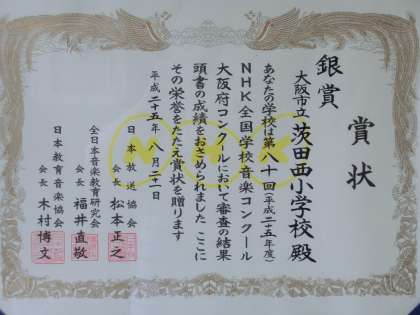 賞状
銀賞
大阪市立 茨田西小学校 殿
あなたの学校は第八十回(平成二十五年度)
NHK全国学校音楽コンクール
大阪府コンクールにおいて審査の結果
頭書の成績をおさめられました ここに
その栄誉をたたえ賞状を贈ります
平成二十五年 八月二十一日
日本放送協会
会長 松本正之
全日本音楽教育研究会
会長 福井直敬
日本教育音楽協会
会長 木村博文
NHK